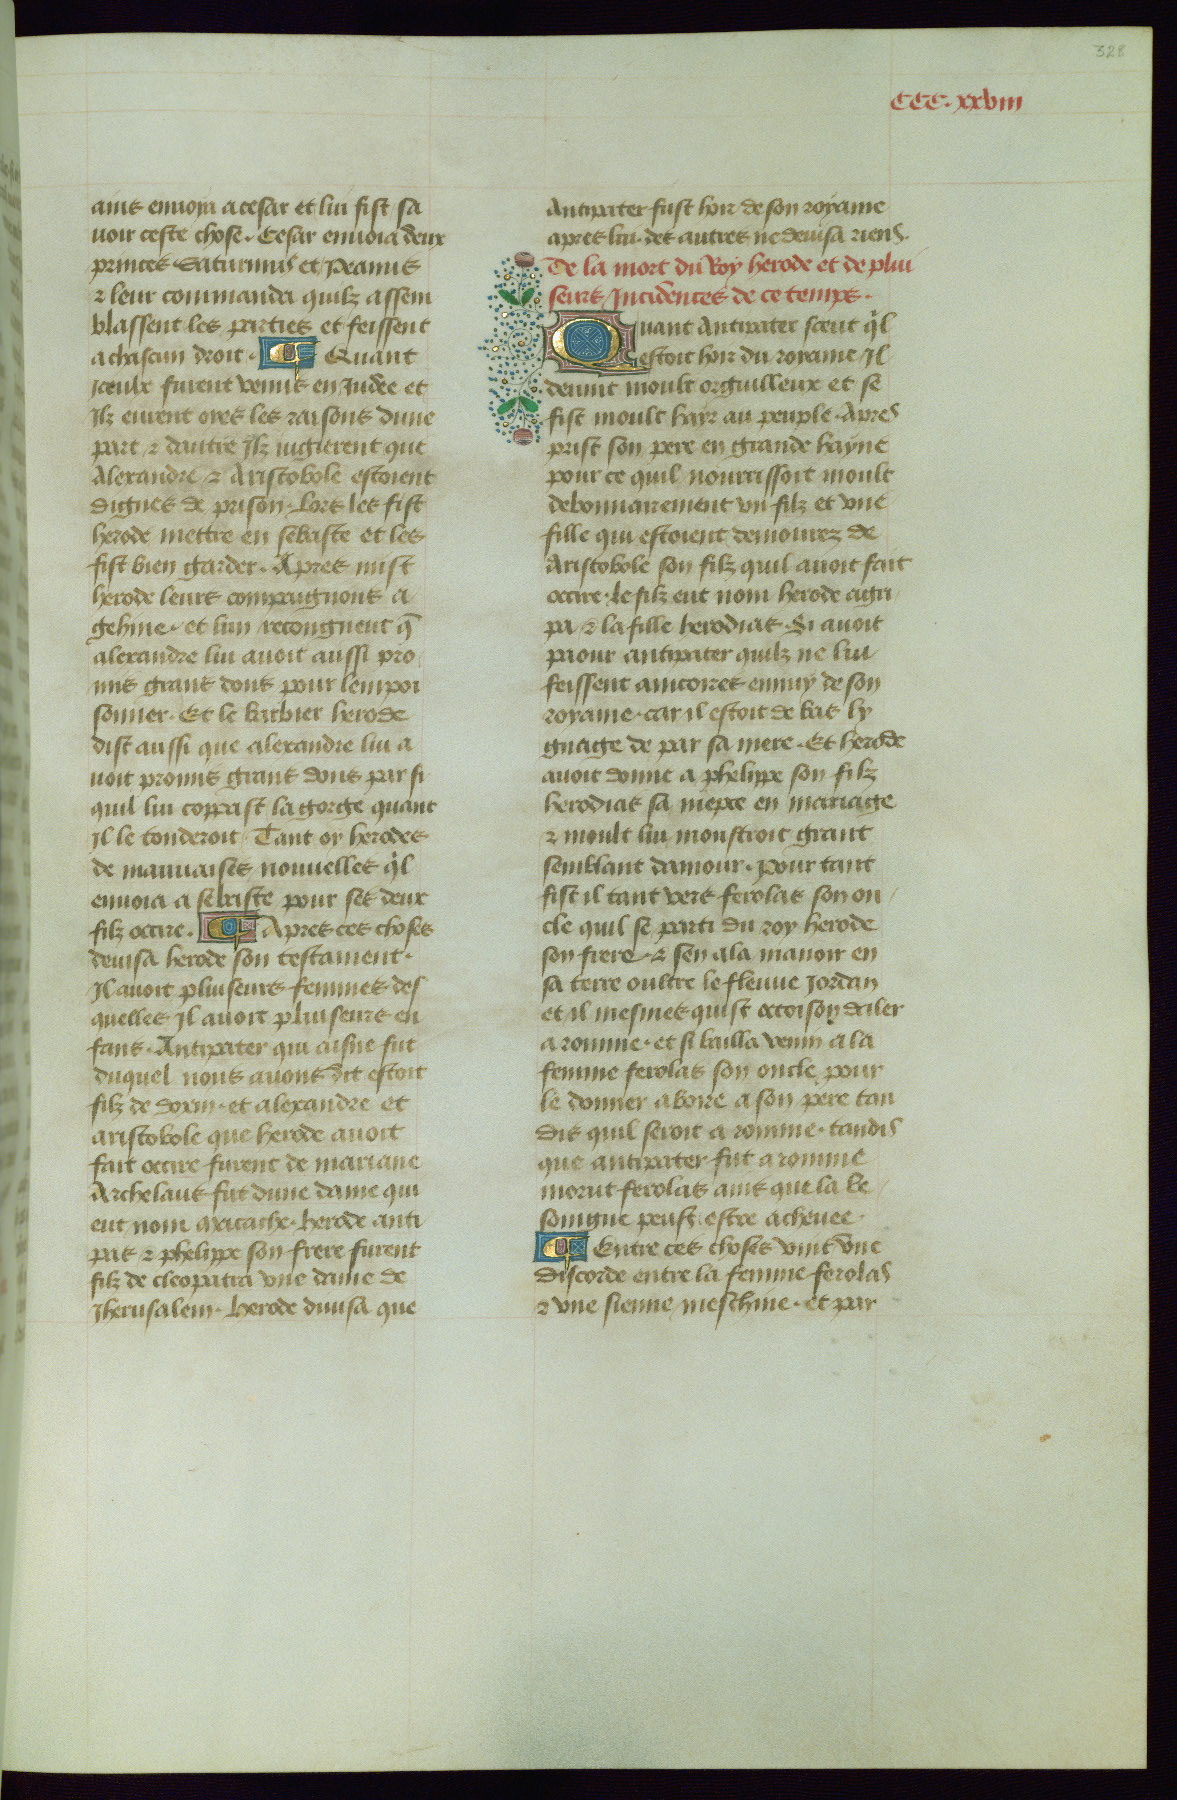 328
CCC. xxviii
ains envoya a cesar et lui fist sa
uoir ceste chose. Cesar envoia deux
princes Saturnius et Peanus
⁊ leur commanda quilz assem
blassent les parties et feissent
a chascun droit. Quant
iceulx furent venus en Judee et
Ilz eurent oyes les raisons dune
part ⁊ dautre Ilz iugierent que
Alexandre ⁊ Aristobole estoient
dignes de prison. Lors les fist
herode mettre en sebaste et les
fist bien garder. Apres mist
herode leurs compaignons a
gehine. et lun recongneut q̄
alexandre lui avoit aussi pro
mis grans dons pour lempoi
sonner. Et le barbier herode
dist aussi que alexandre lui a
uoit promis grans dons par si
quil lui coppast la gorge quant
Il le tonderoit. Tant oy herodes
de mauuaises nouuelles q̄l
envoia a sebaste pour ses deux
filz occire. Apres ces choses
deuisa herode son testament.
Il avoit pluseurs femmes des
quelles Il avoit pluseurs en
fans. Antipater qui aisne fut
duquel nous auons dit estoit
filz de dorin. et alexandre et
aristobole que herode auoit
fait occire furent de mariane
Archelaus fut dune dame qui
eut nom matache. herode anti
pas ⁊ phelippe son frere furent
filz de cleopatra vne dame de
Jherusalem. herode diuisa que
Antipater fust hoir de son royame
apres lui. des autres ne deuisa riens.
De la mort du Roy herode et de plui
seurs Incidences de ce temps.
Quant Antipater sceut q̄l
estoit hoir du royame Il
deuint moult orguilleux et se
fist moult hayr au peuple. Apres
prist son pere en grande hayne
pour ce quil nourrissoit moult
debonnairement vn filz et vne
fille qui estoient demourez de
Aristobole son filz quil auoit fait
occire. le filz eut nom herode agri
pa ⁊ la fille herodias. Si avoit
paour antipater quilz ne lui
feissent aincoires ennuy de son
royame. car il estoit de bas ly
gnage de par sa mere. Et herode
avoit donne a phelippe son filz
herodias sa niepce en mariage
⁊ moult lui monstroit grant
semblant damour. Pour tant
fist il tant vers ferolas son on
cle quil se parti du roy herode
son frere. ⁊ sen ala manoir en
sa terre oultre le fleuue Jordan
et il mesmes quist occoison daler
a romme. et si bailla venin a la
femme ferolas son oncle pour
le donner a boire a son pere tan
dis quil seroit a romme. tandis
que antipater fut a romme
morut ferolas ains que la be
soingne peust estre acheuee.
Entre ces choses vint vne
discorde entre la femme ferolas
⁊ vne sienne meschine. et par